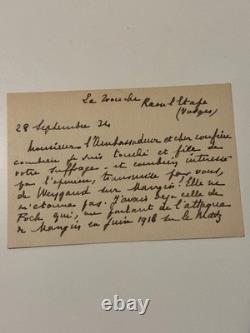 La Trouche
Raon l'Etape
(Vosges)
28 Septembre 34
Monsieur l'Ambassadeur et cher confrère
combien je suis touché et fier de
votre suffrage - et combien intéressé
par l'opinion, transmise par vous,
de Weygand sur Mangin! Elle ne
m'étonne pas. J'avais déjà celle de
Foch qui, me parlant de l'attaque
de Mangin en juin 1918 sur le Matz
© ebay